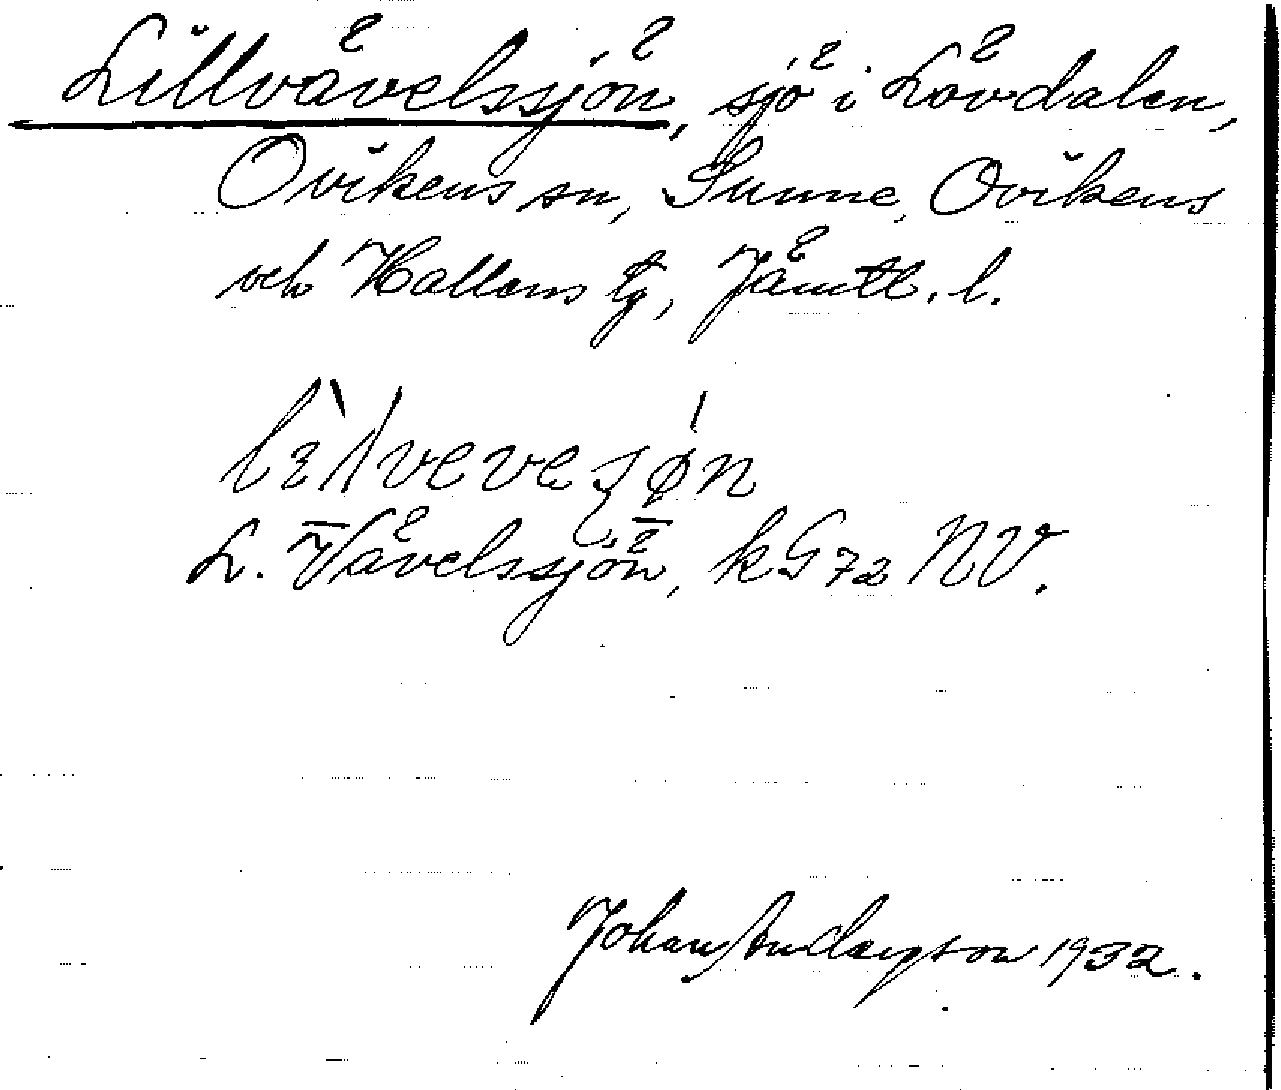 Lillvävelsjön, sjö i Lövdalen,
Ovikens sn, Sunne, Ovikens
och Hallens tg, Jämtl. l.
L. Vävelsjön, kG 72 NV.
Johan Anderson 1932.